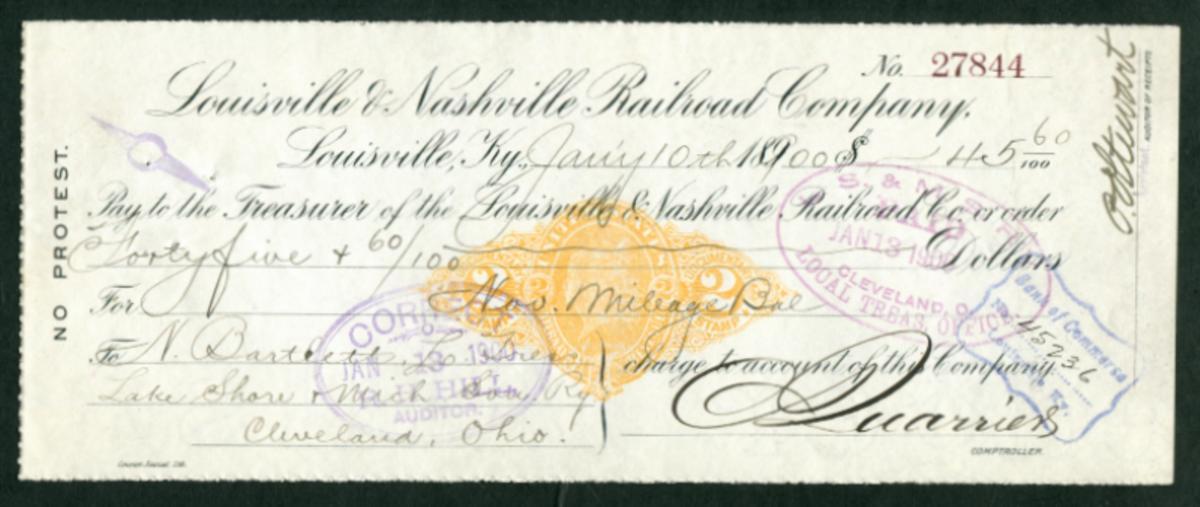 No. 27844
Louisville & Nashville Railroad Company,
Louisville, Ky., Jan'y 10th 1900 $ 45 60/100
Pay to the Treasurer of the Louisville & Nashville Railroad Co. or order
Forty five + 60/100 Dollars
For Nov. Mileage Bal
To N. Bartlett, charge to account of this Company.
Lake Shore & Mich Sou. Ry
Cleveland, Ohio.
Quarrier
COMPTROLLER.
NO PROTEST.
AUDITOR OF RECEIPTS
UNITED STATES
2 2
STAMP
CORRECT
JAN 13 1900
HILL
AUDITOR.
PAID
JAN 13 1900
CLEVELAND, O.
LOCAL TREAS. OFFICE.
Bank of Commerce
No. 45236
Ky.
Courier-Journal Lith.